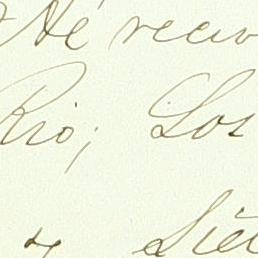 He reciv
Rio; Los
y Siet